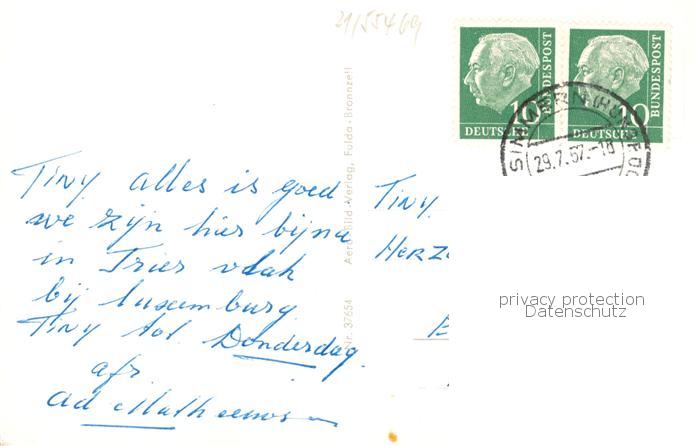 21/55469
10 BUNDESPOST 10 BUNDESPOST
DEUTSCHE DEUTSCHE
SIMMERN (HUNSR
29.7.57.-18
Tiny alles is goed
we zijn hier bijna
in Trier vlak
bij Luxemburg
Tiny tot Donderdag.
afz
Ad Matheeuws
Nr. 37654 Aero-Bild-Verlag, Fulda-Bronnzell
Tiny
HERZ
privacy protection
Datenschutz